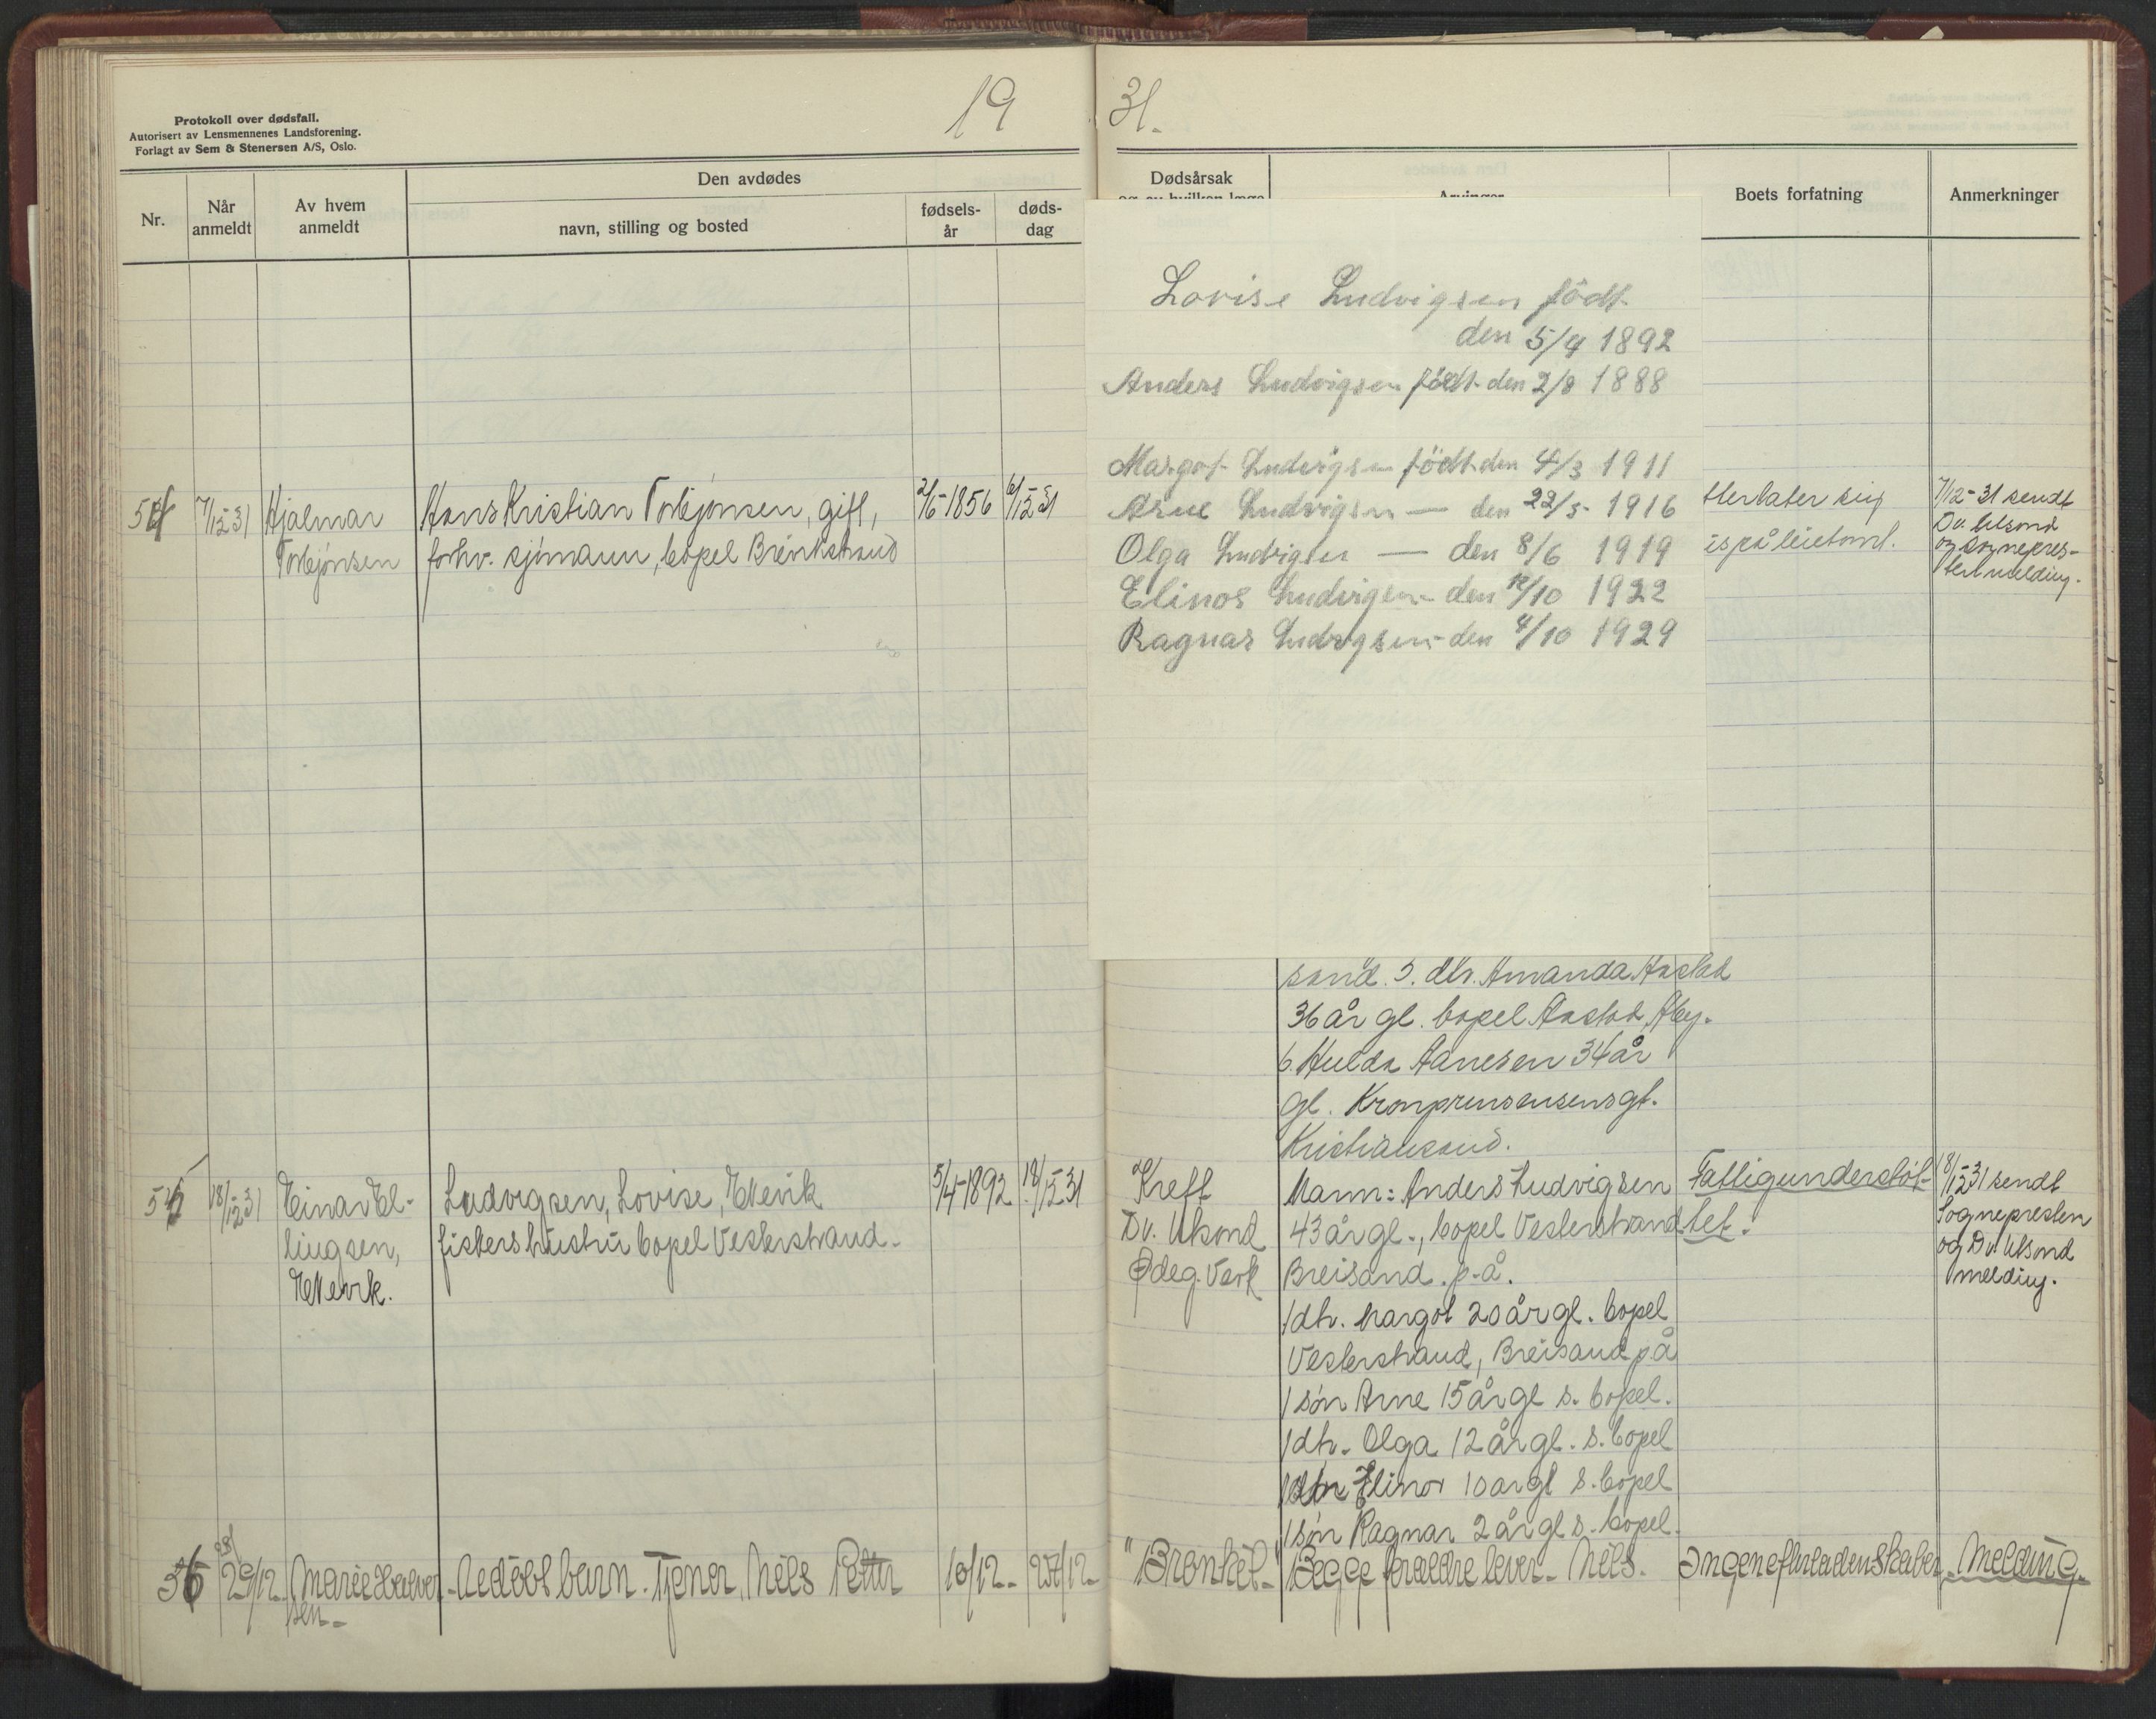 19 31.
Protokoll over dødsfall.
Autorisert av Lensmennenes Landsforening.
Forlagt av Sem & Stenersen A/S, Oslo.
Nr.
Når anmeldt
Av hvem anmeldt
Den avdødes
navn, stilling og bosted
fødsels-år
døds-dag
Dødsårsak
Boets forfatning
Anmerkninger
Lovise Ludvigsen födt
den 5/4 1892
Anders Ludvigsen födt den 2/8 1888
Margot Ludvigsen födt den 4/3 1911
Arne Ludvigsen — den 22/5 1916
Olga Ludvigsen — den 8/6 1919
Elinor Ludvigsen den /10 1922
Ragnar Ludvigsen den 4/10 1929
54
7/12-31
Hjalmar
Torbjönsen
Hans Kristian Torbjönsen, gift,
forhv. sjömann, bopel
2/6-1856
6/12-31
7/12-31 sendt
Dv. Ulsond
og sognepres-
ten melding.
sand. 5. dtr. Amanda
36 år gl. bopel
6. Hulda Aanesen 34 år
gl.
Kristiansand.
55
18/12-31
Einar El-
lingsen,
Ludvigsen, Lovise,
fiskers hustru bopel Vesterstrand.
5/4-1892
18/12-31
Kreft
Dv. Ulsond
Ødeg. Verk
Mann: Anders Ludvigsen
43 år gl., bopel Vesterstrand
Breisand. p.å.
1 dtr. Margot 20 år gl. bopel
Vesterstrand, Breisand p å
1 sön Arne 15 år gl s. bopel.
1 dtr. Olga 12 år gl. s. bopel
Elinor 10 år gl s. bopel
1 sön Ragnar 2 år gl s. bopel.
Fattigunderstöt-
tet.
18/12-31 sendt
Sognepresten
og Dv. Ulsond
melding.
56
29/12.
Marie Halvor-
sen.
Aedöbt barn. Tjener, Nils Petter
10/12-
"Bronkit"
Begge foreldre lever. Nils.
Ingen efterladenskaber
Melding.